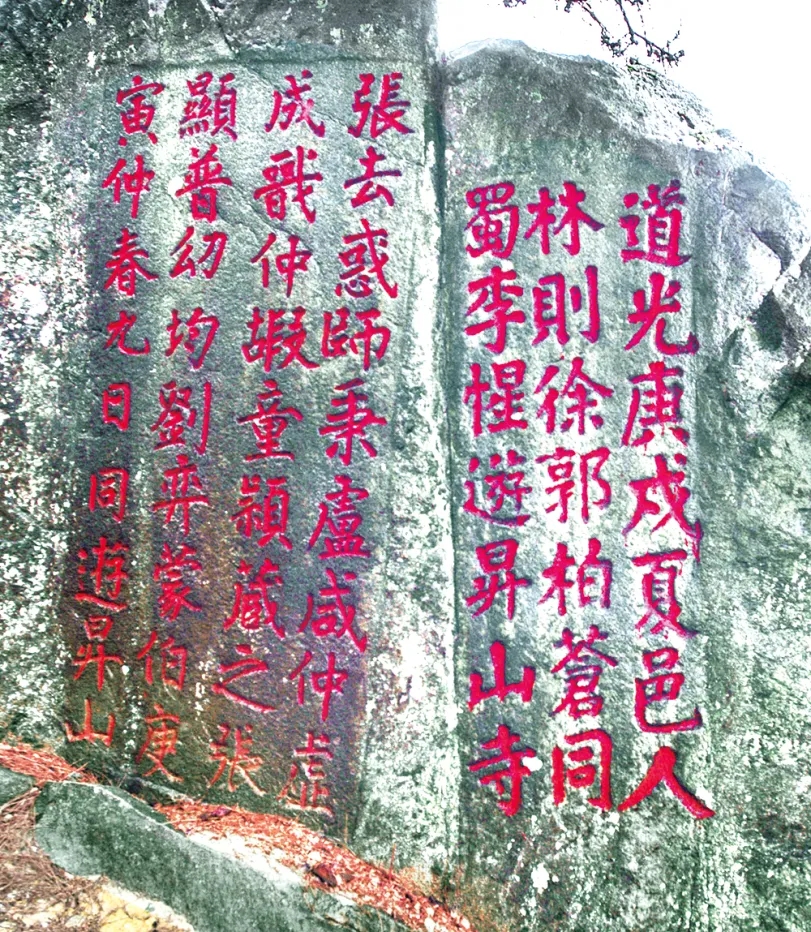 道光庚戌夏邑人
林則徐郭柏蒼同
蜀李惺遊昇山寺
張去惑師秉盧咸仲虛
成戩仲嘏童頴蔵之張
顯普幼均劉弈蒙伯庚
寅仲春九日同遊昇山